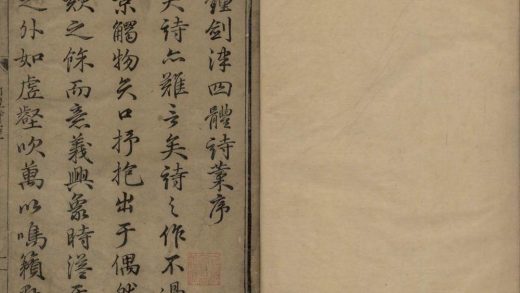 鍾劍津四體詩葉序
夫詩亦難言矣詩之作不過
景觸物矢口抒抱出于偶然
欬之餘而意義興象時溢于
之外如虛壑吹萬以鳴籟